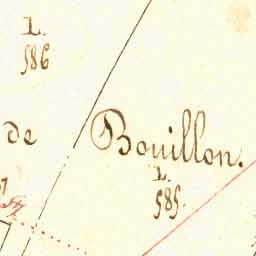 L.
586
de Bouillon.
L.
585.